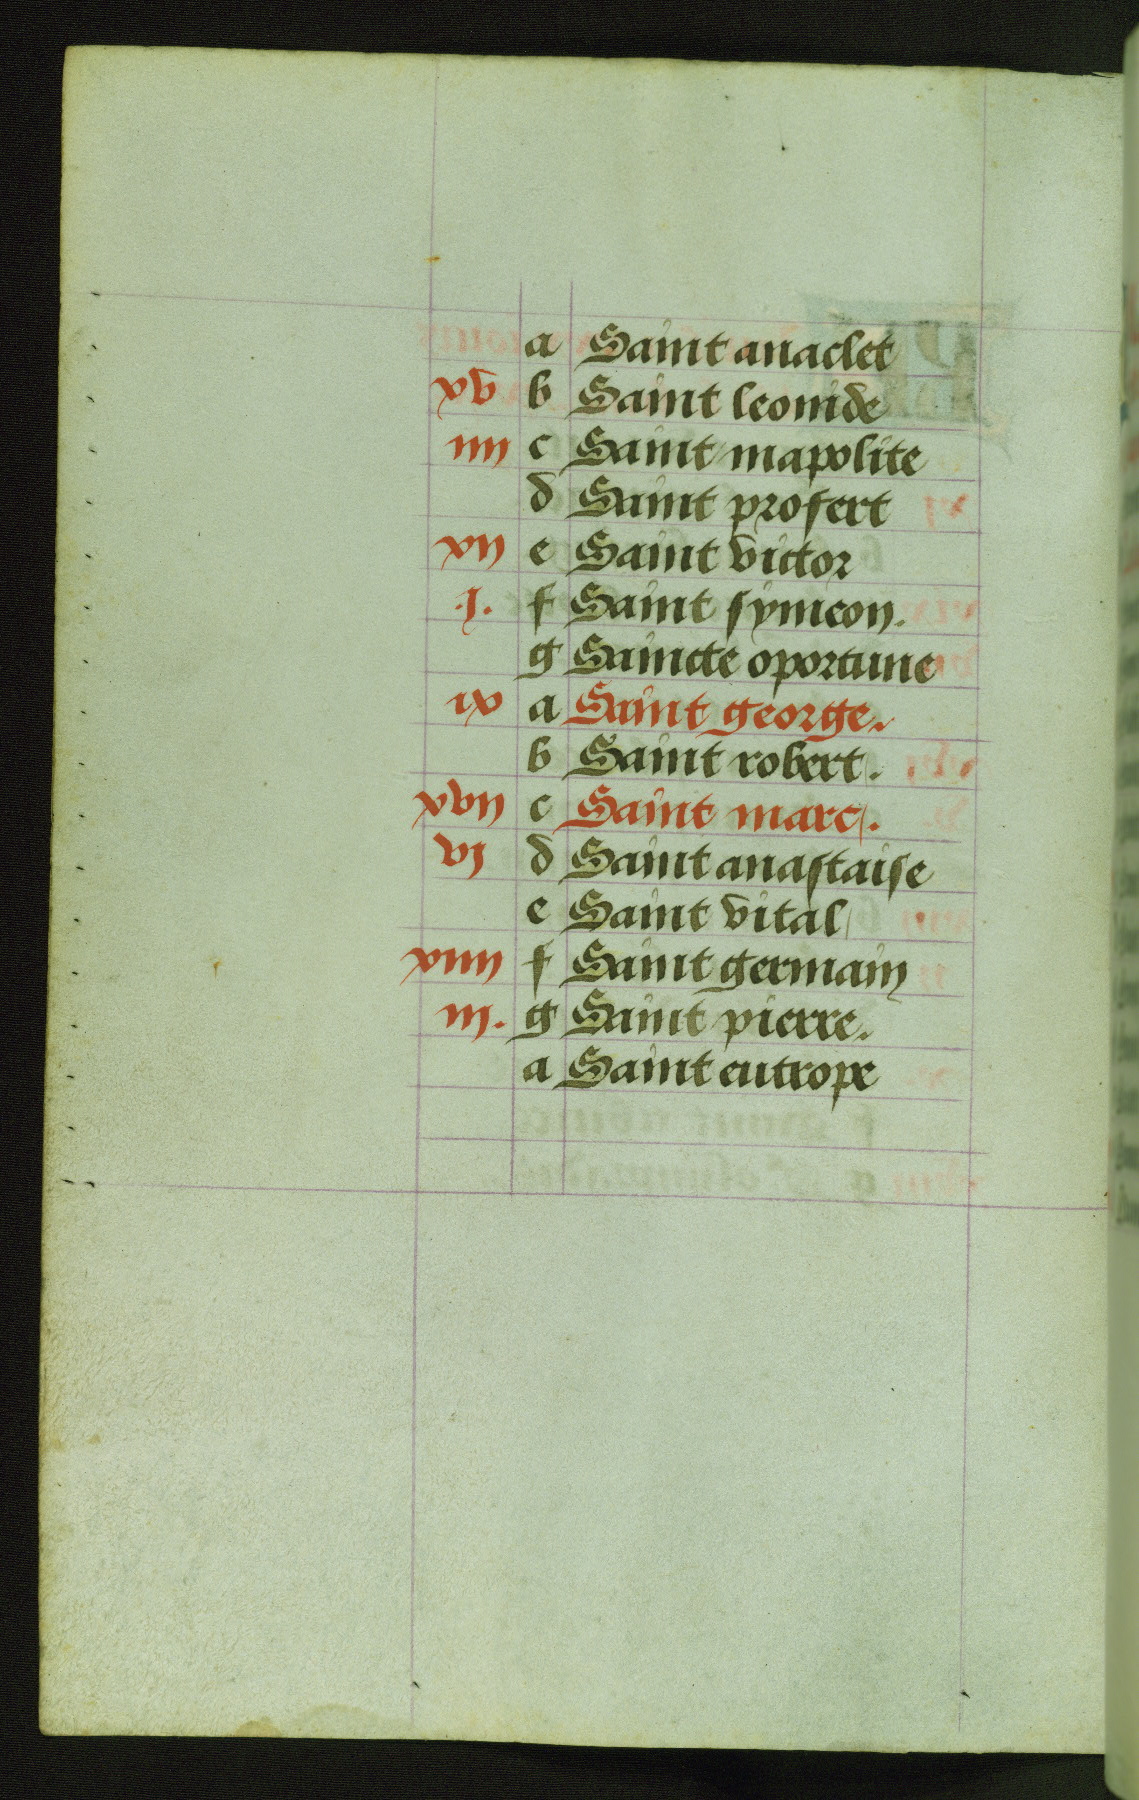 a Saint anaclet
xv b Saint leonide
iiii c Saint mapolite
d Saint profert
xii e Saint victor
.j. f Saint symeon.
g Saincte oportune
ix a Saint george.
b Saint robert.
xvii c Saint marc.
vi d Saint anastaise
e Saint vital
xiiii f Saint germain
iii. g Saint pierre.
a Saint eutrope